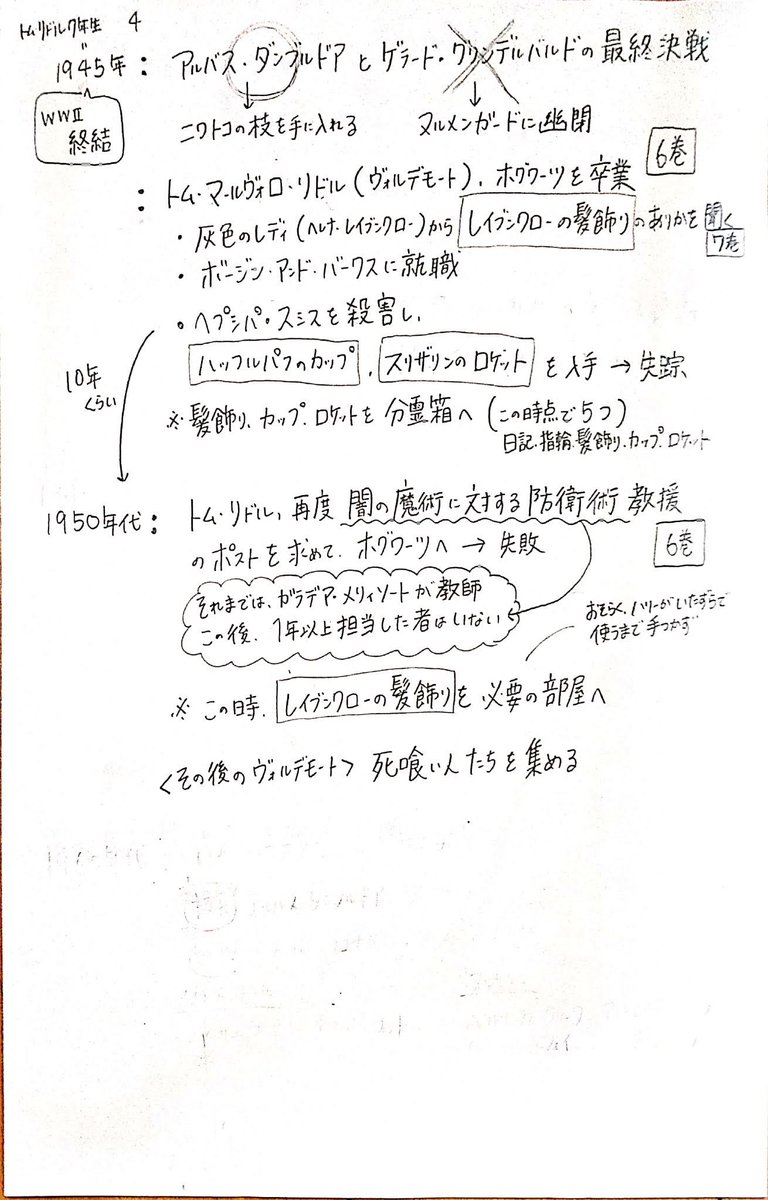 トムリドル7年生 4
1945年： アルバス・ダンブルドア と ゲラード・グリンデルバルドの最終決戦
WWⅡ
終結
ニワトコの枝を手に入れる ヌルメンガードに幽閉
6巻
： トム・マールヴォロ・リドル（ヴォルデモート）、ホグワーツを卒業
・灰色のレディ（ヘレナ・レイブンクロー）から レイブンクローの髪飾り のありかを聞く
7巻
・ボージン・アンド・バークスに就職
・ヘプシバ・スミスを殺害し、
10年
くらい
ハッフルパフのカップ 、スリザリンのロケット を入手 → 失踪
※髪飾り、カップ、ロケットを分霊箱へ（この時点で5つ）
日記、指輪、髪飾り、カップ、ロケット
1950年代： トム・リドル、再度 闇の魔術に対する防衛術 教援
のポストを求めて、ホグワーツへ → 失敗
6巻
それまでは、ガラテア・メリィソートが教師
この後、1年以上担当した者はいない
おそらく、ハリーがいたずらで
使うまで手つかず
※ この時、レイブンクローの髪飾り を必要の部屋へ
＜その後のヴォルデモート＞ 死喰い人たちを集める